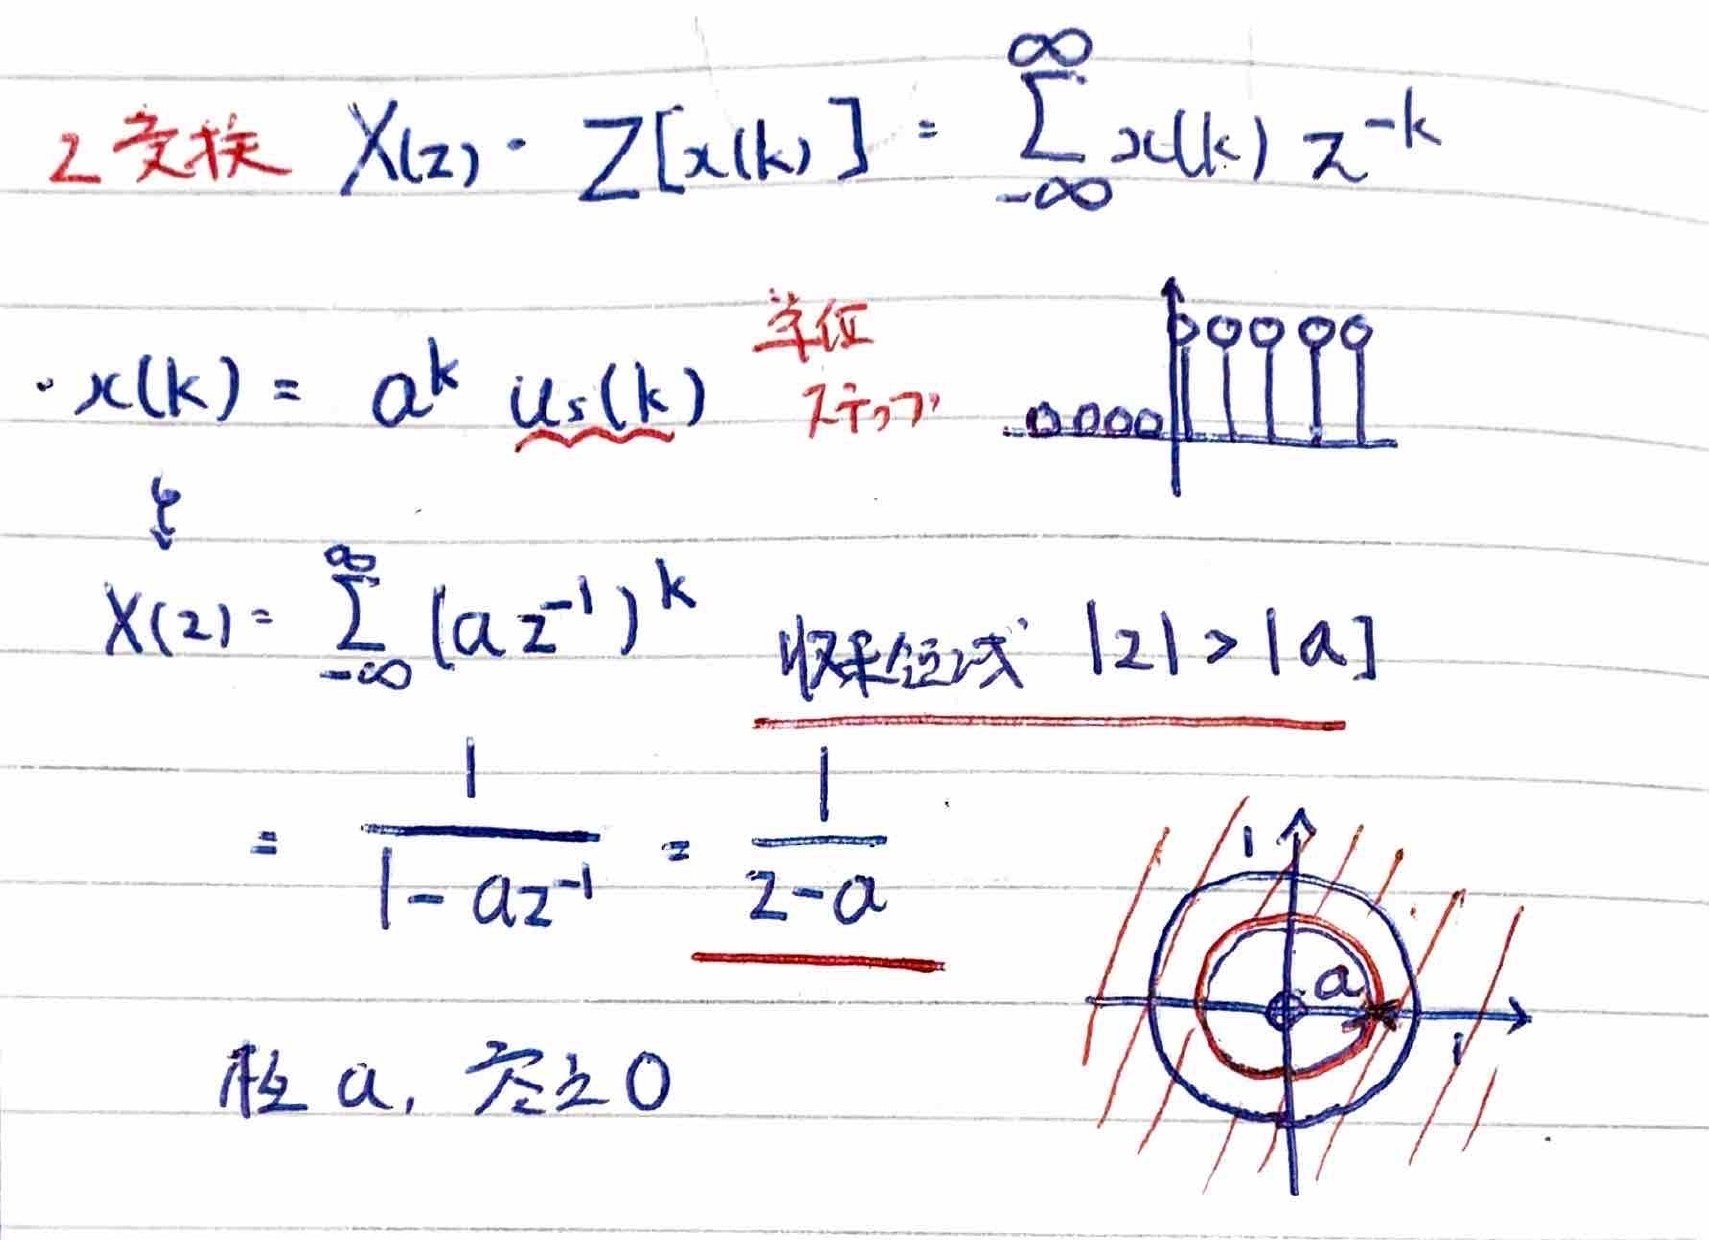 z変換 X(z) = Z[x(k)] = ∞∑-∞ x(k) z^-k
・x(k) = a^k us(k) 単位
ステップ
X(z) = ∞∑-∞ (az^-1)^k 収束領域 |z| > |a|
= 1/(1-az^-1) = 1/(z-a)
1
a
1
極 a, 零点 0